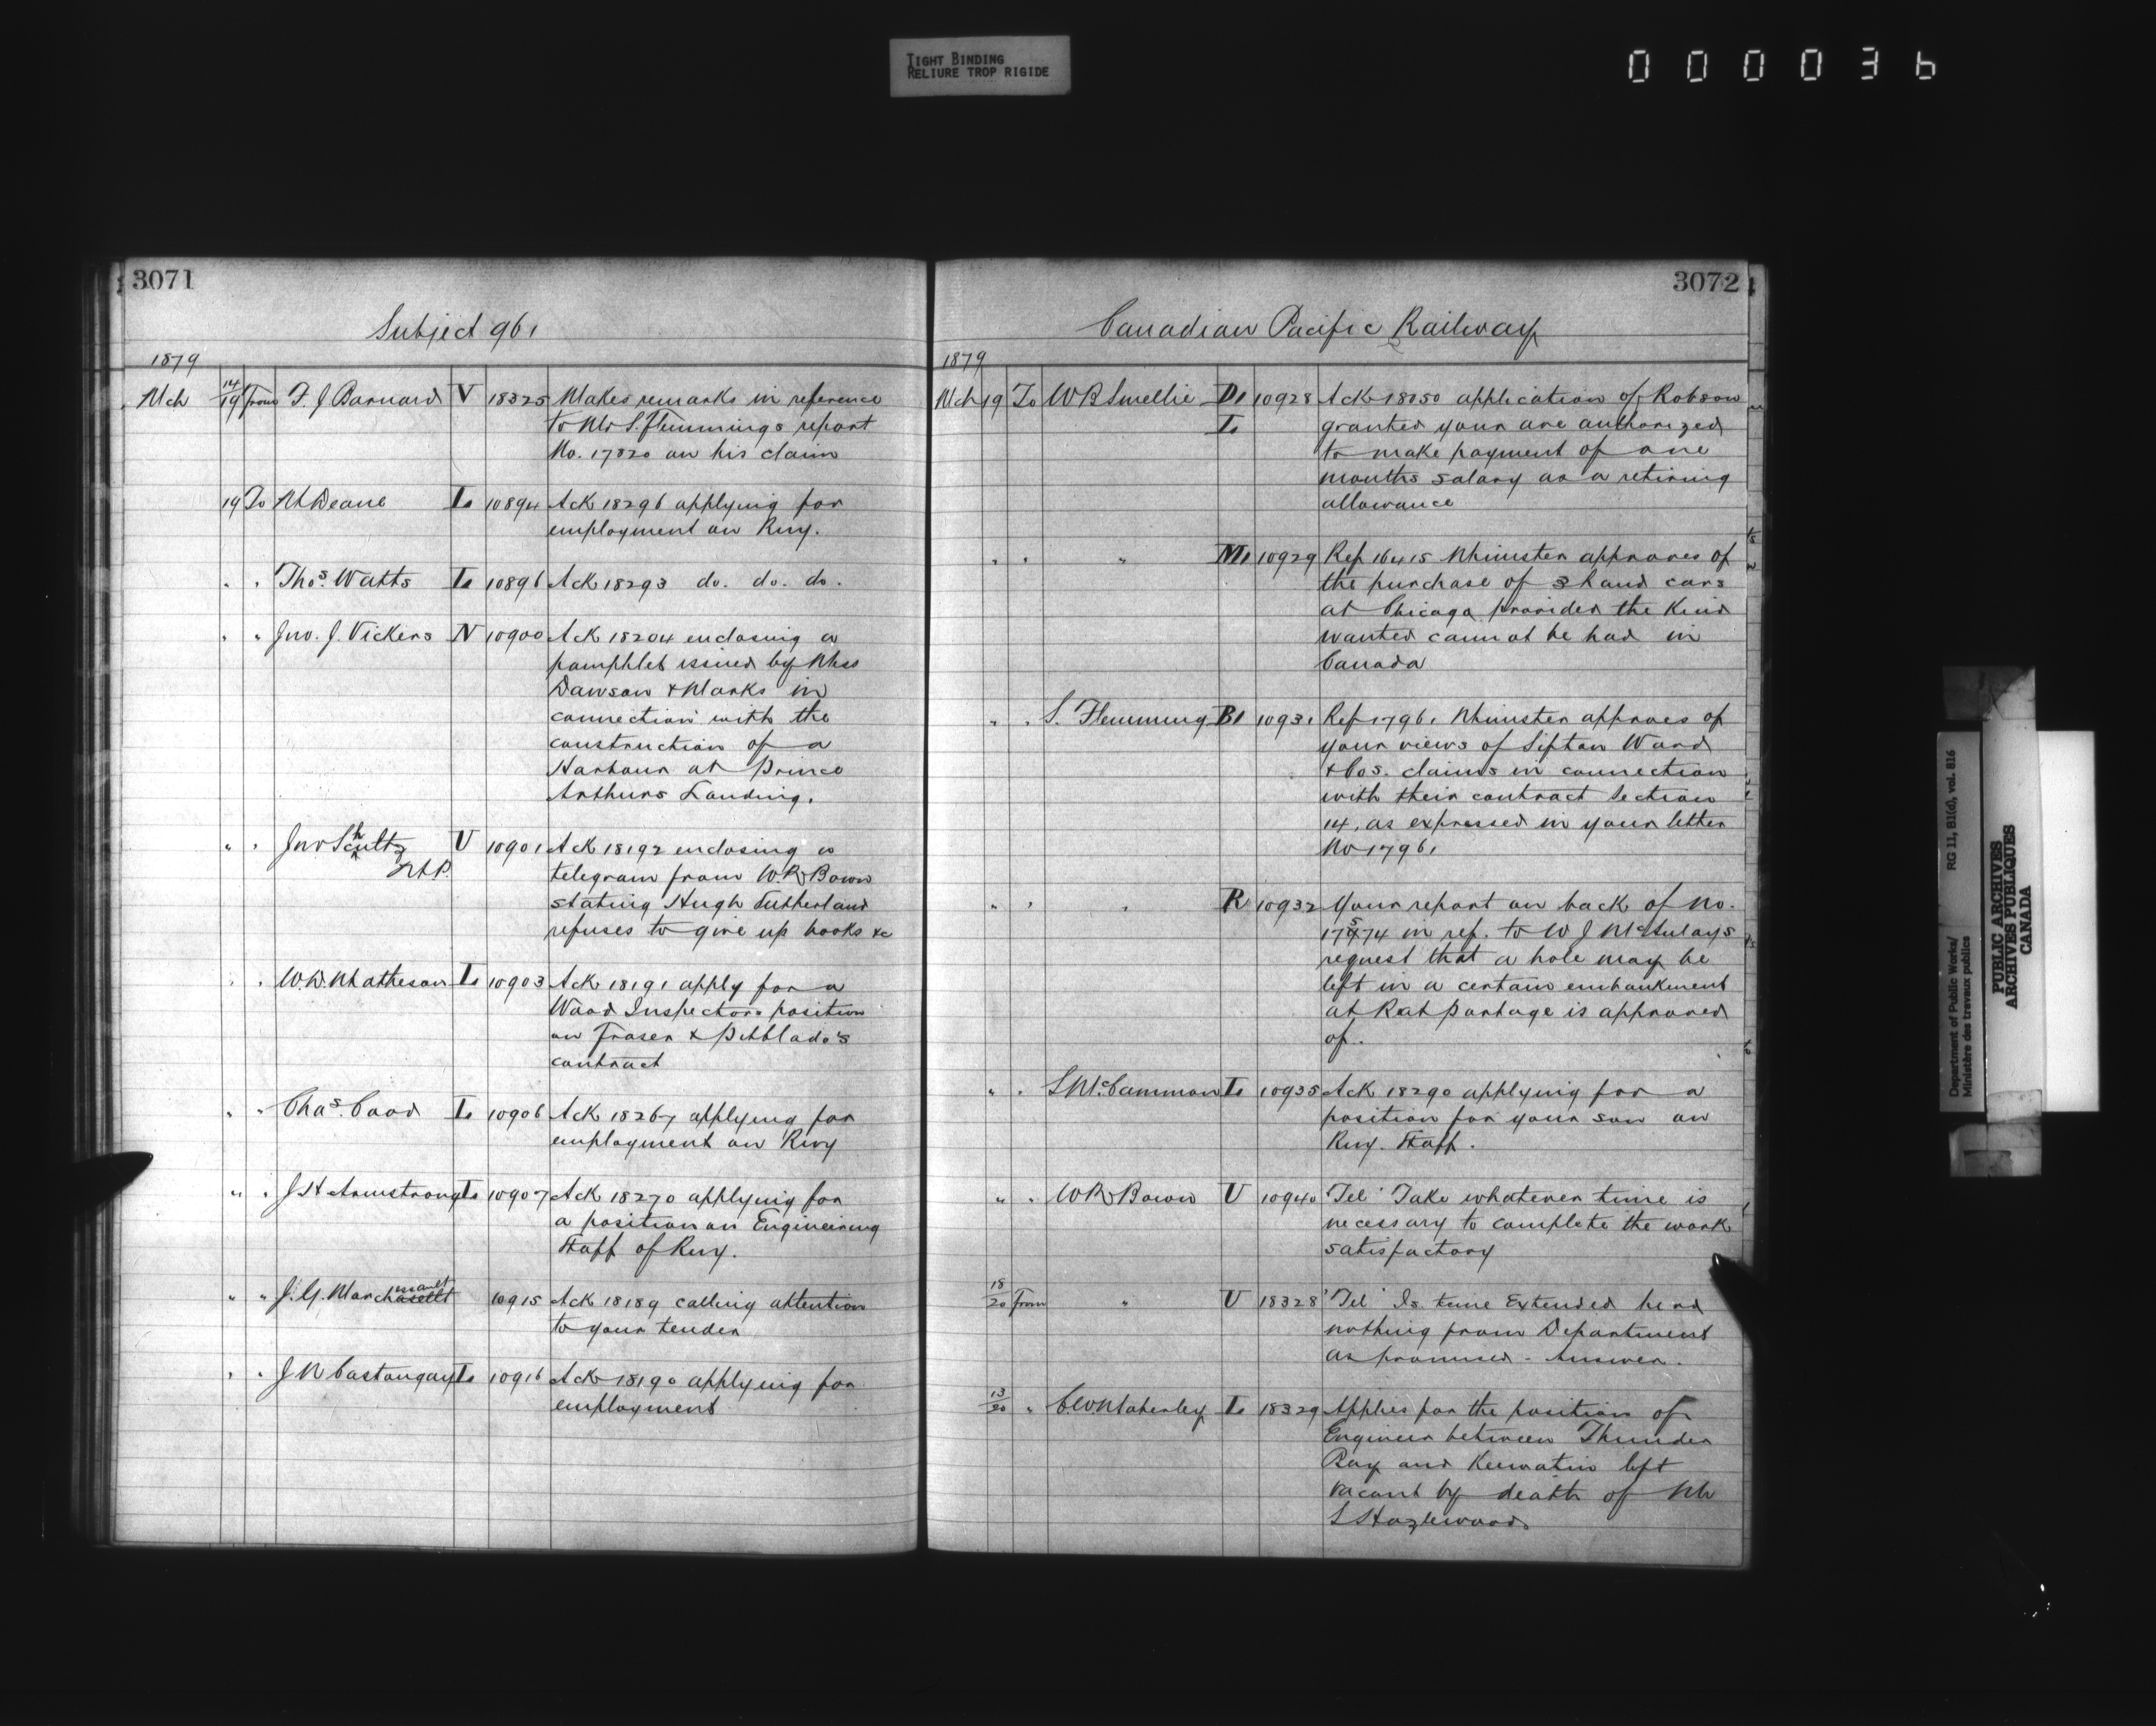 TIGHT BINDING
RELIURE TROP RIGIDE
000036
3071
Subject 961
1879
Mch 14/19 From F. J. Barnard V 18325 Makes remarks in reference
to Mr S. Flemmings report
No. 17820 on his claim
19 To M Deane L 10894 Ack 18296 applying for
employment on Rwy.
" " Thos. Watts L 10896 Ack 18293 do. do. do.
" " Jno. J. Vickers N 10900 Ack 18204 enclosing a
pamphlet issued by Mess
Dawson & Marks in
connection with the
construction of a
Harbour at Prince
Arthurs Landing.
" " Jno Schultz U 10901 Ack 18192 enclosing a
M.P. telegram from W. R. Bown
stating Hugh Sutherland
refuses to give up books &c
" " W. D. Matheson L 10903 Ack 18191 apply for a
Wood Inspectors position
on Fraser & Pitblado's
contract
" " Chas. Cood L 10906 Ack 18267 applying for
employment on Rwy
" " J H Armstrong L 10907 Ack 18270 applying for
a position on Engineering
Staff of Rwy.
" " J. G. Marchessault 10915 Ack 18189 calling attention
to your tender
" " J N Castonguay L 10916 Ack 18190 applying for
employment
3072
Canadian Pacific Railway
1879
Mch 19 To W B Smellie D1 10928 Ack 18050 application of Robson
L granted your are authorized
to make payment of one
months salary as a retiring
allowance
" " " M1 10929 Ref 16415 Minister approves of
the purchase of 3 hand cars
at Chicago provided the Kind
wanted cannot be had in
Canada
" " S. Flemming B1 10931 Ref 17961 Minister approves of
your views of Sifton Ward
& Cos. claims in connection
with their contract Section
14, as expressed in your letter
No 17961
" " " R 10932 Your report on back of no.
17574 in ref. to W J McAulays
request that a hole may be
left in a certain embankment
at Rat Portage is approved
of.
" " S McCammon L 10935 Ack 18290 applying for a
position for your son on
Rwy. Staff.
" " W R Bown U 10940 "Tel" Take whatever time is
necessary to complete the work
satisfactory
18/20 From " U 18328 "Tel" Is time Extended head
nothing from Department
as promised - Answer.
13/20 " C. W. Moberley L 18329 Applies for the position of
Engineer between Thunder
Bay and Keewatin left
vacant by death of Mr
S Hazlewood.
Department of Public Works/ RG 11, B1(d), vol. 816
Ministère des travaux publics
PUBLIC ARCHIVES
ARCHIVES PUBLIQUES
CANADA